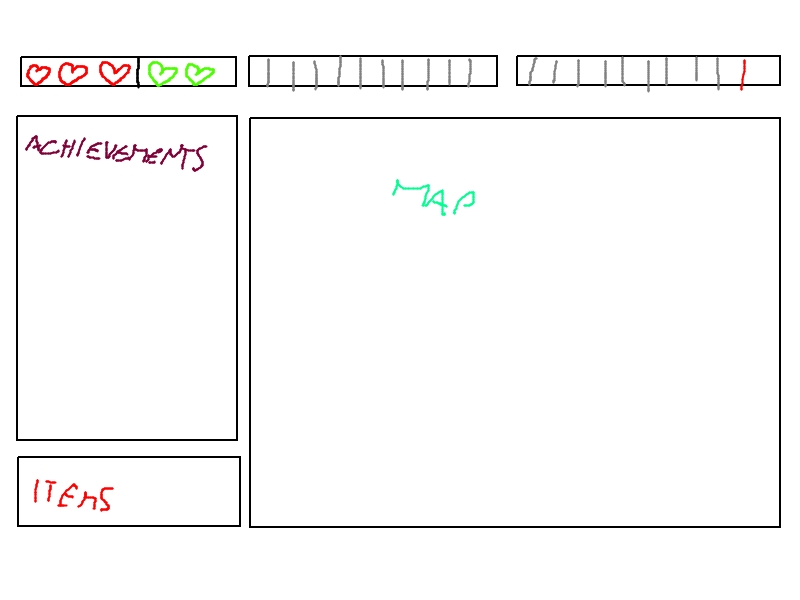 ACHIEVEMENTS
MAP
ITEMS